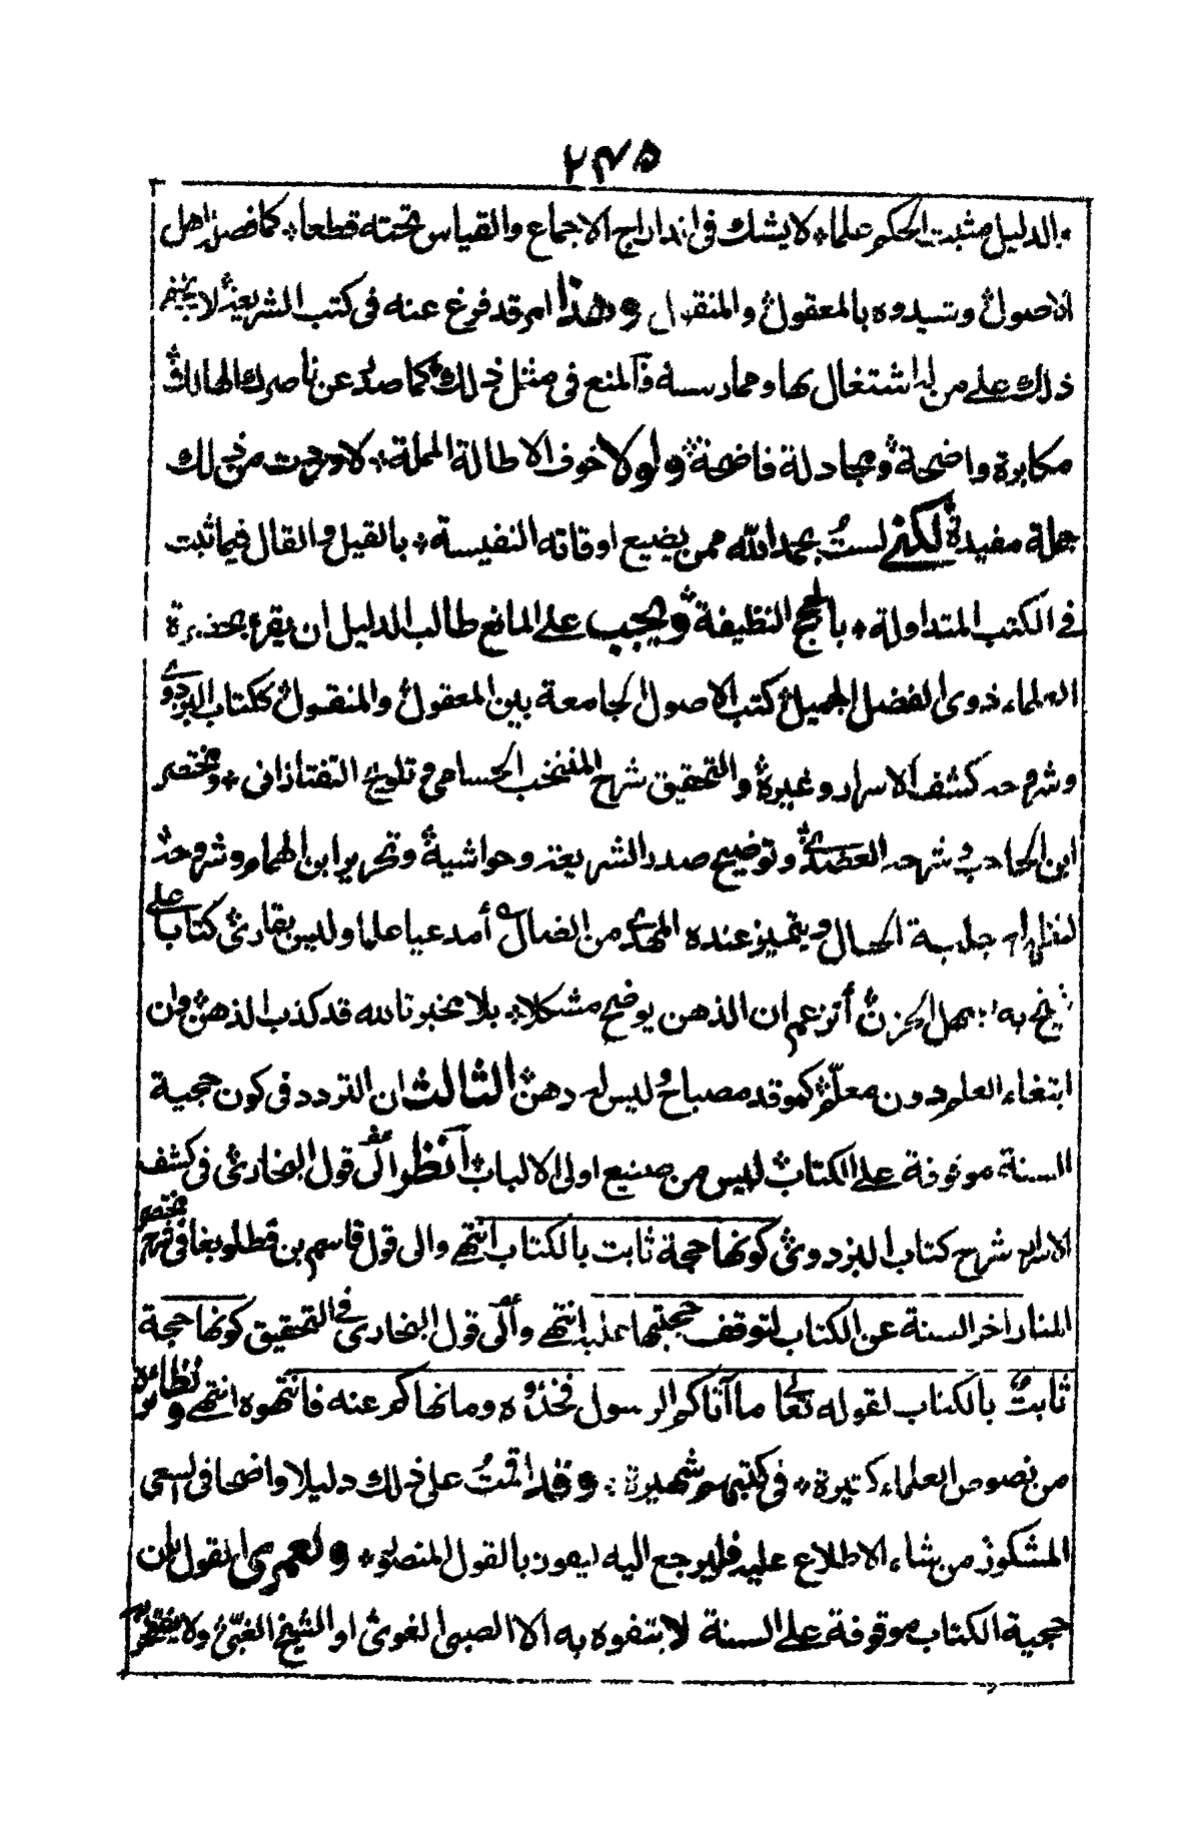 ٢٣٥
بالدليل مثبت الحكم علما * لا يشك فى اندراج الاجماع والقياس تحته قطعا * كما فصله اهل
الاصول * وشيدوه بالمعقول * والمنقول وهذا امر قد فرغ عنه فى كتب الشريعة * لا يخفى
ذلك على من له اشتغال بها وممارسة * والمنع فى مثل ذلك * كما صدر عن ناصرك الهالك *
مكابرة واضحة * ومجادلة فاضحة * ولولا خوف الاطالة المملة * لاوردت من ذلك
جملة مفيدة * لكنى لستُ بحمد الله ممن يضيع اوقاته النفيسة * بالقيل والقال فيما ثبت
فى الكتب المتداولة * بالحجج النظيفة * ويجب على المانع طالب الدليل ان يقرء بحضرة
العلماء ذوى الفضل الجميل * كتب الاصول الجامعة بين المعقول * والمنقول * ككتاب البزدوى
وشروحه كشف الاسرار وغيره * والتحقيق شرح المنتخب الحسامى وتلويح التفتازانى * ومختصر
ابن الحاجب وشرحه العضدى * وتوضيح صدر الشريعة وحواشيه * وتحرير ابن الهمام وشروحه *
لتظهر له جلية الحال ويتميز عنده المهدى من الضال * أمدعيا علما وليس بقارئ * كتابا على
شيخ به يسهل الحزن * أتزعم ان الذهن يوضح مشكلا * بلا مخبر تالله قد كذب الذهن * وان
ابتغاء العلم دون معلّم * كموقد مصباح * ليس له دهن * الثالث ان التردد فى كون حجية
السنة موقوفة على الكتاب * ليس من صنيع اولى الالباب * أنظر الى قول البخارى * فى كشف
الاسرار شرح كتاب البزدوى * كونها حجة ثابت بالكتاب انتهى والى قول قاسم بن قطلوبغا فى شرح مختصر
المنار اخر السنة عن الكتاب لتوقف حجيتها عليه انتهى والى قول البخارى فى التحقيق كونها حجة
ثابت بالكتاب لقوله تعالى ما آتاكم الرسول فخذوه وما نهاكم عنه فانتهوه انتهى ونظائره
من نصوص العلماء كثيرة * فى كتبهم شهيرة * وقد اقمتُ على ذلك دليلا واضحا فى السعى
المشكور من شاء الاطلاع عليه فليرجع اليه ليفوز بالقول المنصور * ولعمرى القول بان
حجية الكتاب موقوفة على السنة لا يتفوه به الا الصبى الغوى * او الشيخ الغبّى * ولا